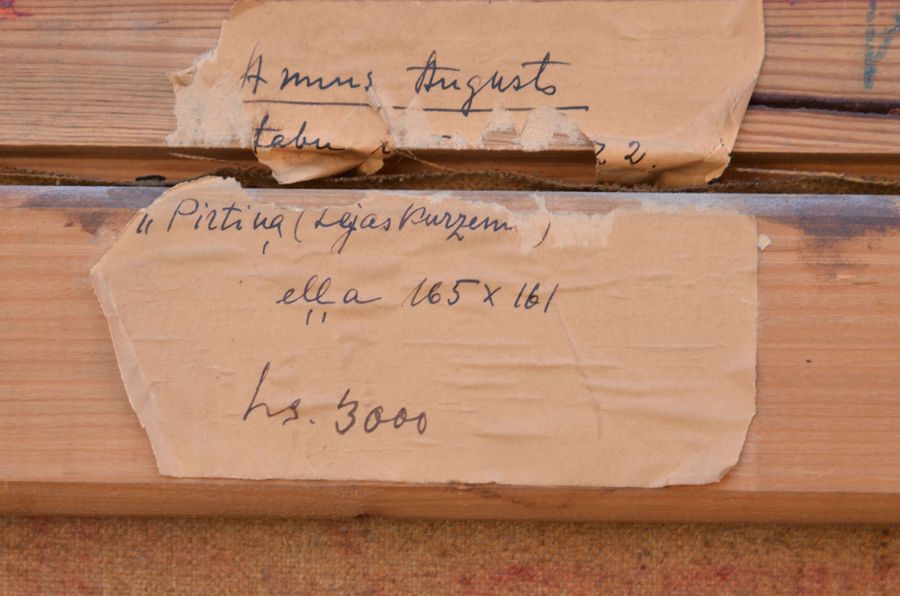 Annus Augusts
Labu 2.
„Pirtiņa (Lejaskurzem )
eļļa 165 x 161
Ls. 3000